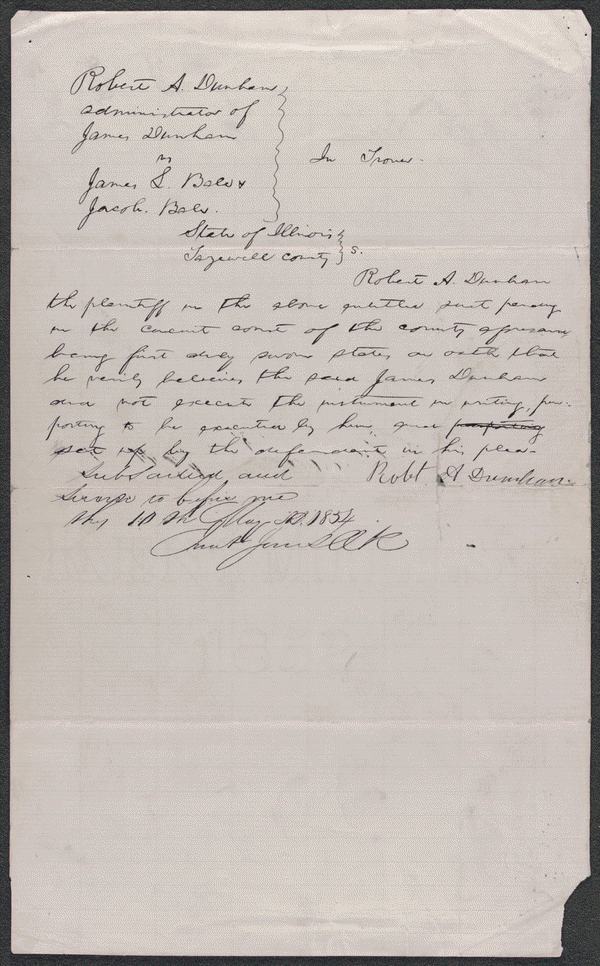 Robert A. Dunham
administrator of
James Dunham
vs
James L. Bale &
Jacob. Bale.
In Trover.
State of Illinois
Tazewell county
s.
Robert A. Dunham
the plaintiff in the above entitled suit pending
in the circuit court of the county aforesaid
being first duly sworn states on oath that
he verily believes the said James Dunham
did not execute the instrument in writing, pur-
porting to be executed by him, and purporting
set up by the defendant in his plea-
Subscribed and
Robt A Dunham
Sworn to before me
this 10th May AD. 1854